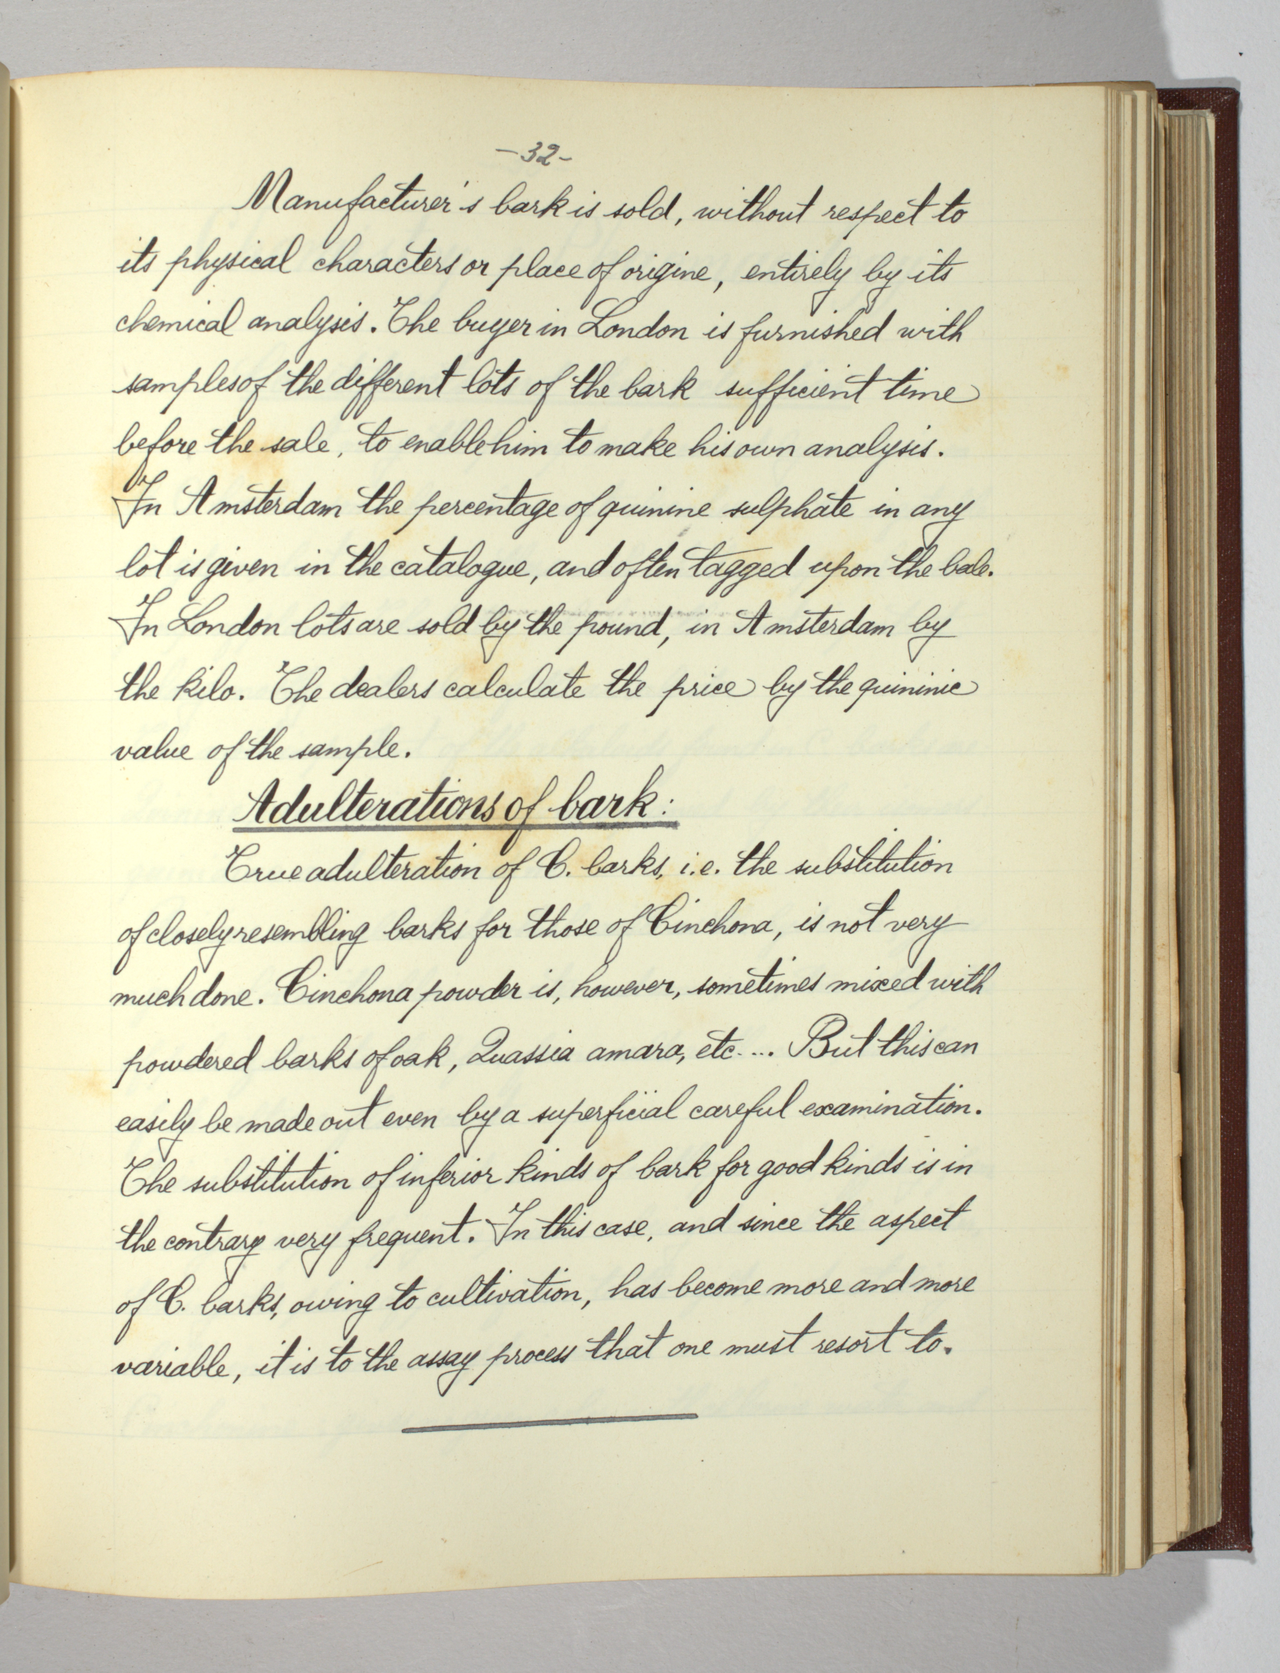 -32-
Manufacturer's bark is sold, without respect to
its physical characters or place of origine, entirely by its
chemical analysis. The buyer in London is furnished with
samples of the different lots of the bark sufficient time
before the sale, to enable him to make his own analysis.
In Amsterdam the percentage of quinine sulphate in any
lot is given in the catalogue, and often tagged upon the bale.
In London lots are sold by the pound, in Amsterdam by
the kilo. The dealers calculate the price by the quininic
value of the sample.
Adulterations of bark:
True adulteration of C. barks, i.e. the substitution
of closely resembling barks for those of Cinchona, is not very
much done. Cinchona powder is, however, sometimes mixed with
powdered barks of oak, Quassia amara, etc.... But this can
easily be made out even by a superficial careful examination.
The substitution of inferior kinds of bark for good kinds is in
the contrary very frequent. In this case, and since the aspect
of C. barks, owing to cultivation, has become more and more
variable, it is to the assay process that one must resort to.